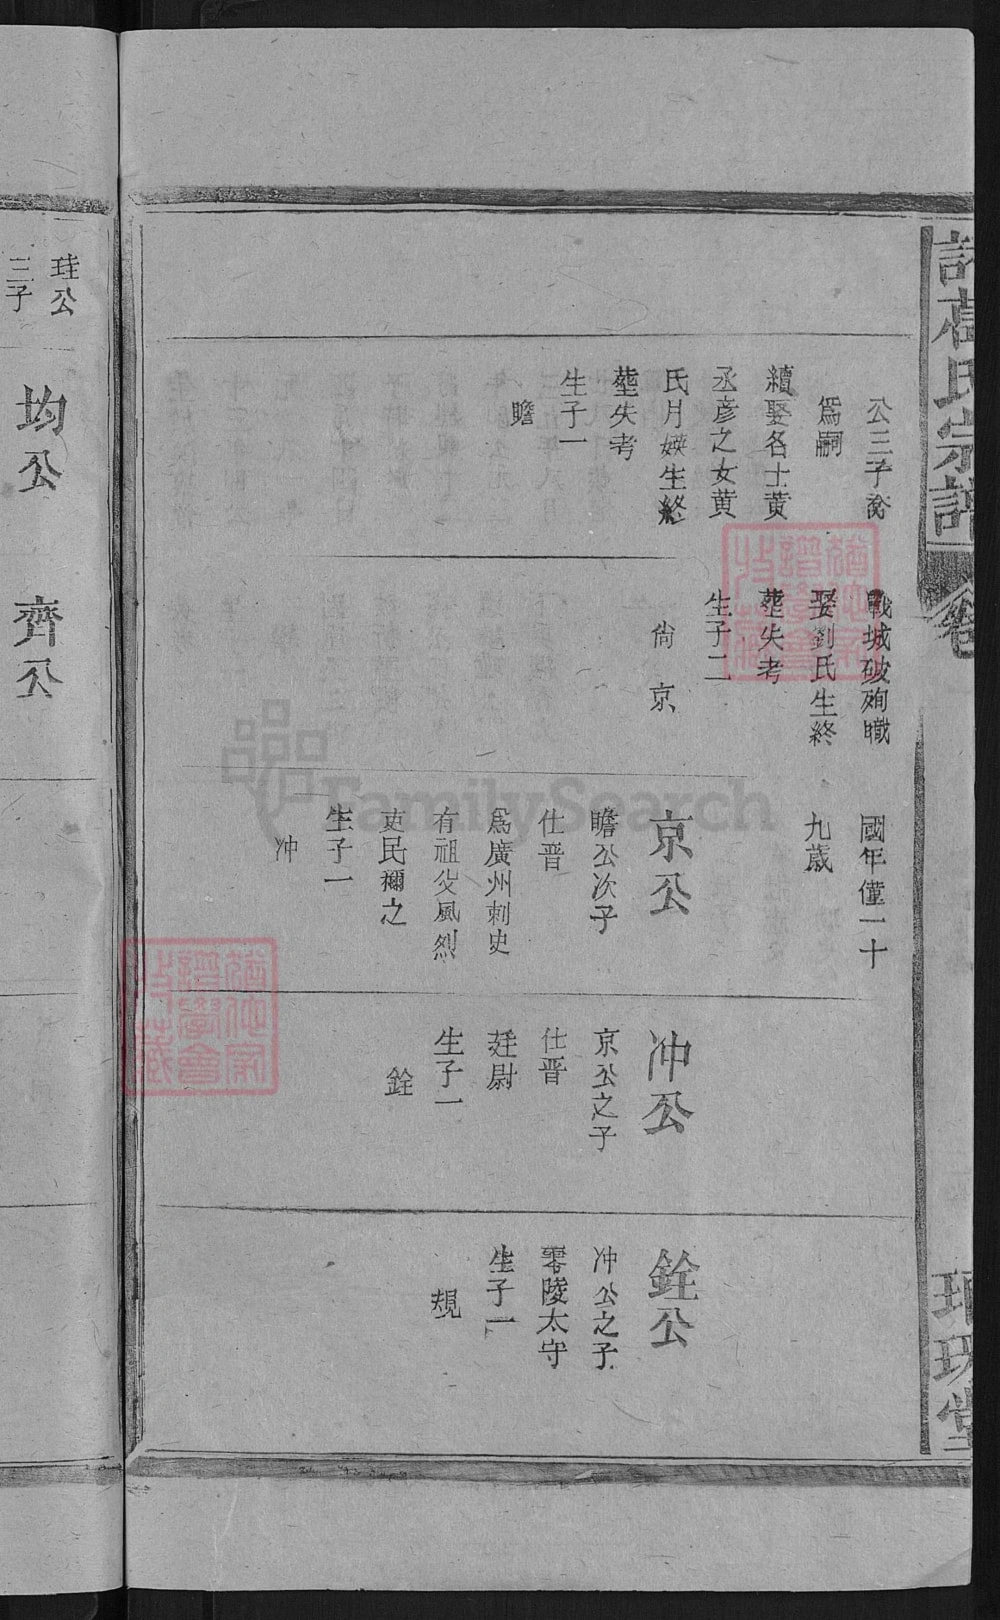 諸葛氏宗譜
卷
琅琊堂
公三子喬
爲嗣
續娶名士黃
丞彥之女黃
氏月娛生終
塟失考
生子一
瞻
戰城破殉職
娶劉氏生終
塟失考
生子二
尚 京
國年僅一十
九歲
京公
瞻公次子
仕晋
爲廣州刺史
有祖父風烈
吏民禰之
生子一
冲
冲公
京公之子
仕晋
廷尉
生子一
銓
銓公
冲公之子
零陵太守
生子一
規
珪公
三子
均公
齊公
FamilySearch